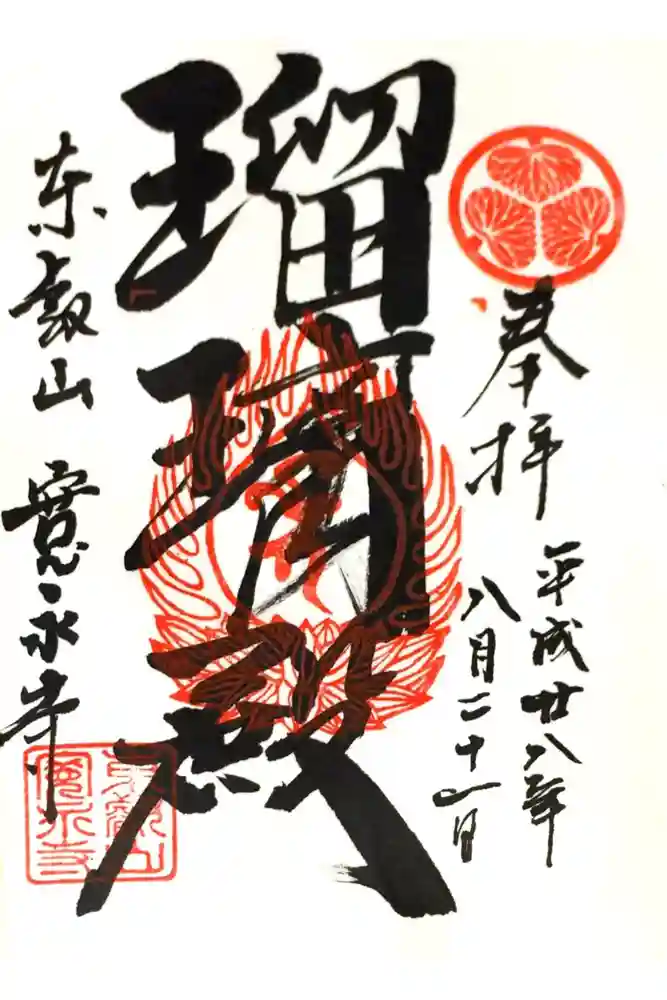 奉拝
平成廿八年
八月二十一日
瑠璃殿
東叡山 寛永寺
東叡山
寛永寺